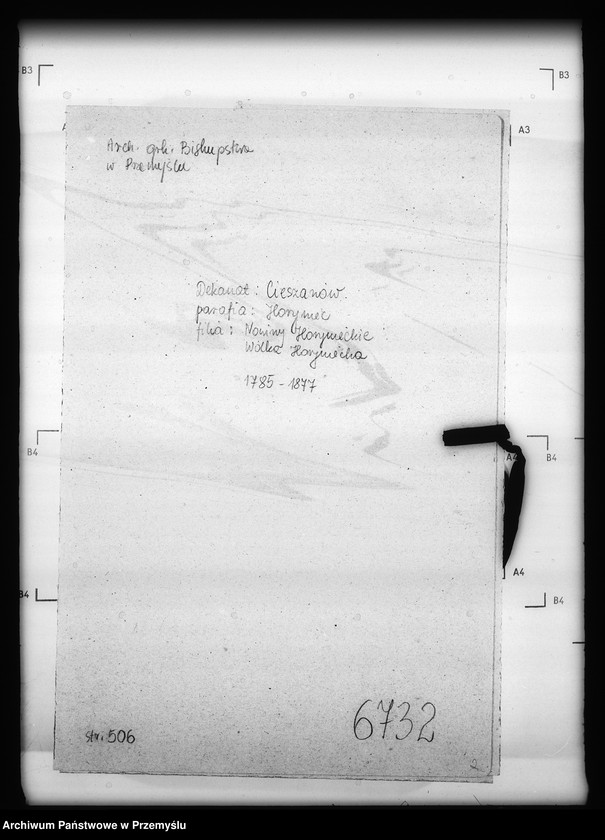 B3
B3
A3
Arch. grk. Biskupstwa
w Przemyślu
Dekanat: Cieszanów.
parafia: Horyniec
filia: Nowiny Horynieckie
Wólka Horyniecka
1785 - 1877
B4
A4
B4
A4
B4
B4
str. 506
6732
Archiwum Państwowe w Przemyślu